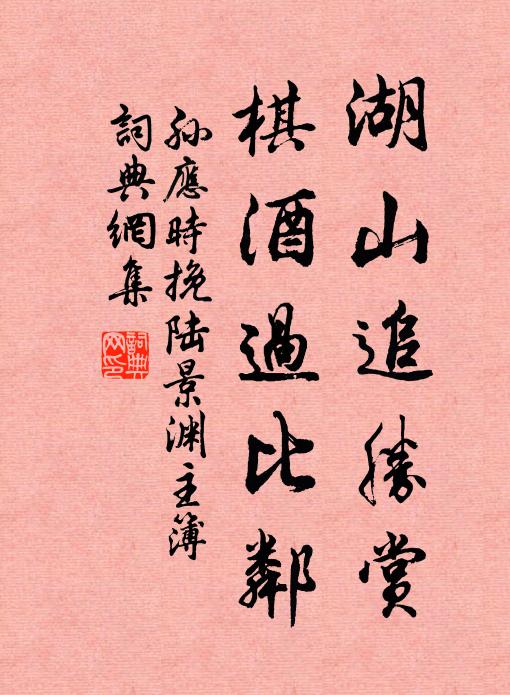 湖山追勝賞
棋酒過比鄰
孫應時挽陆景淵主簿
詞典網集
詞典網印